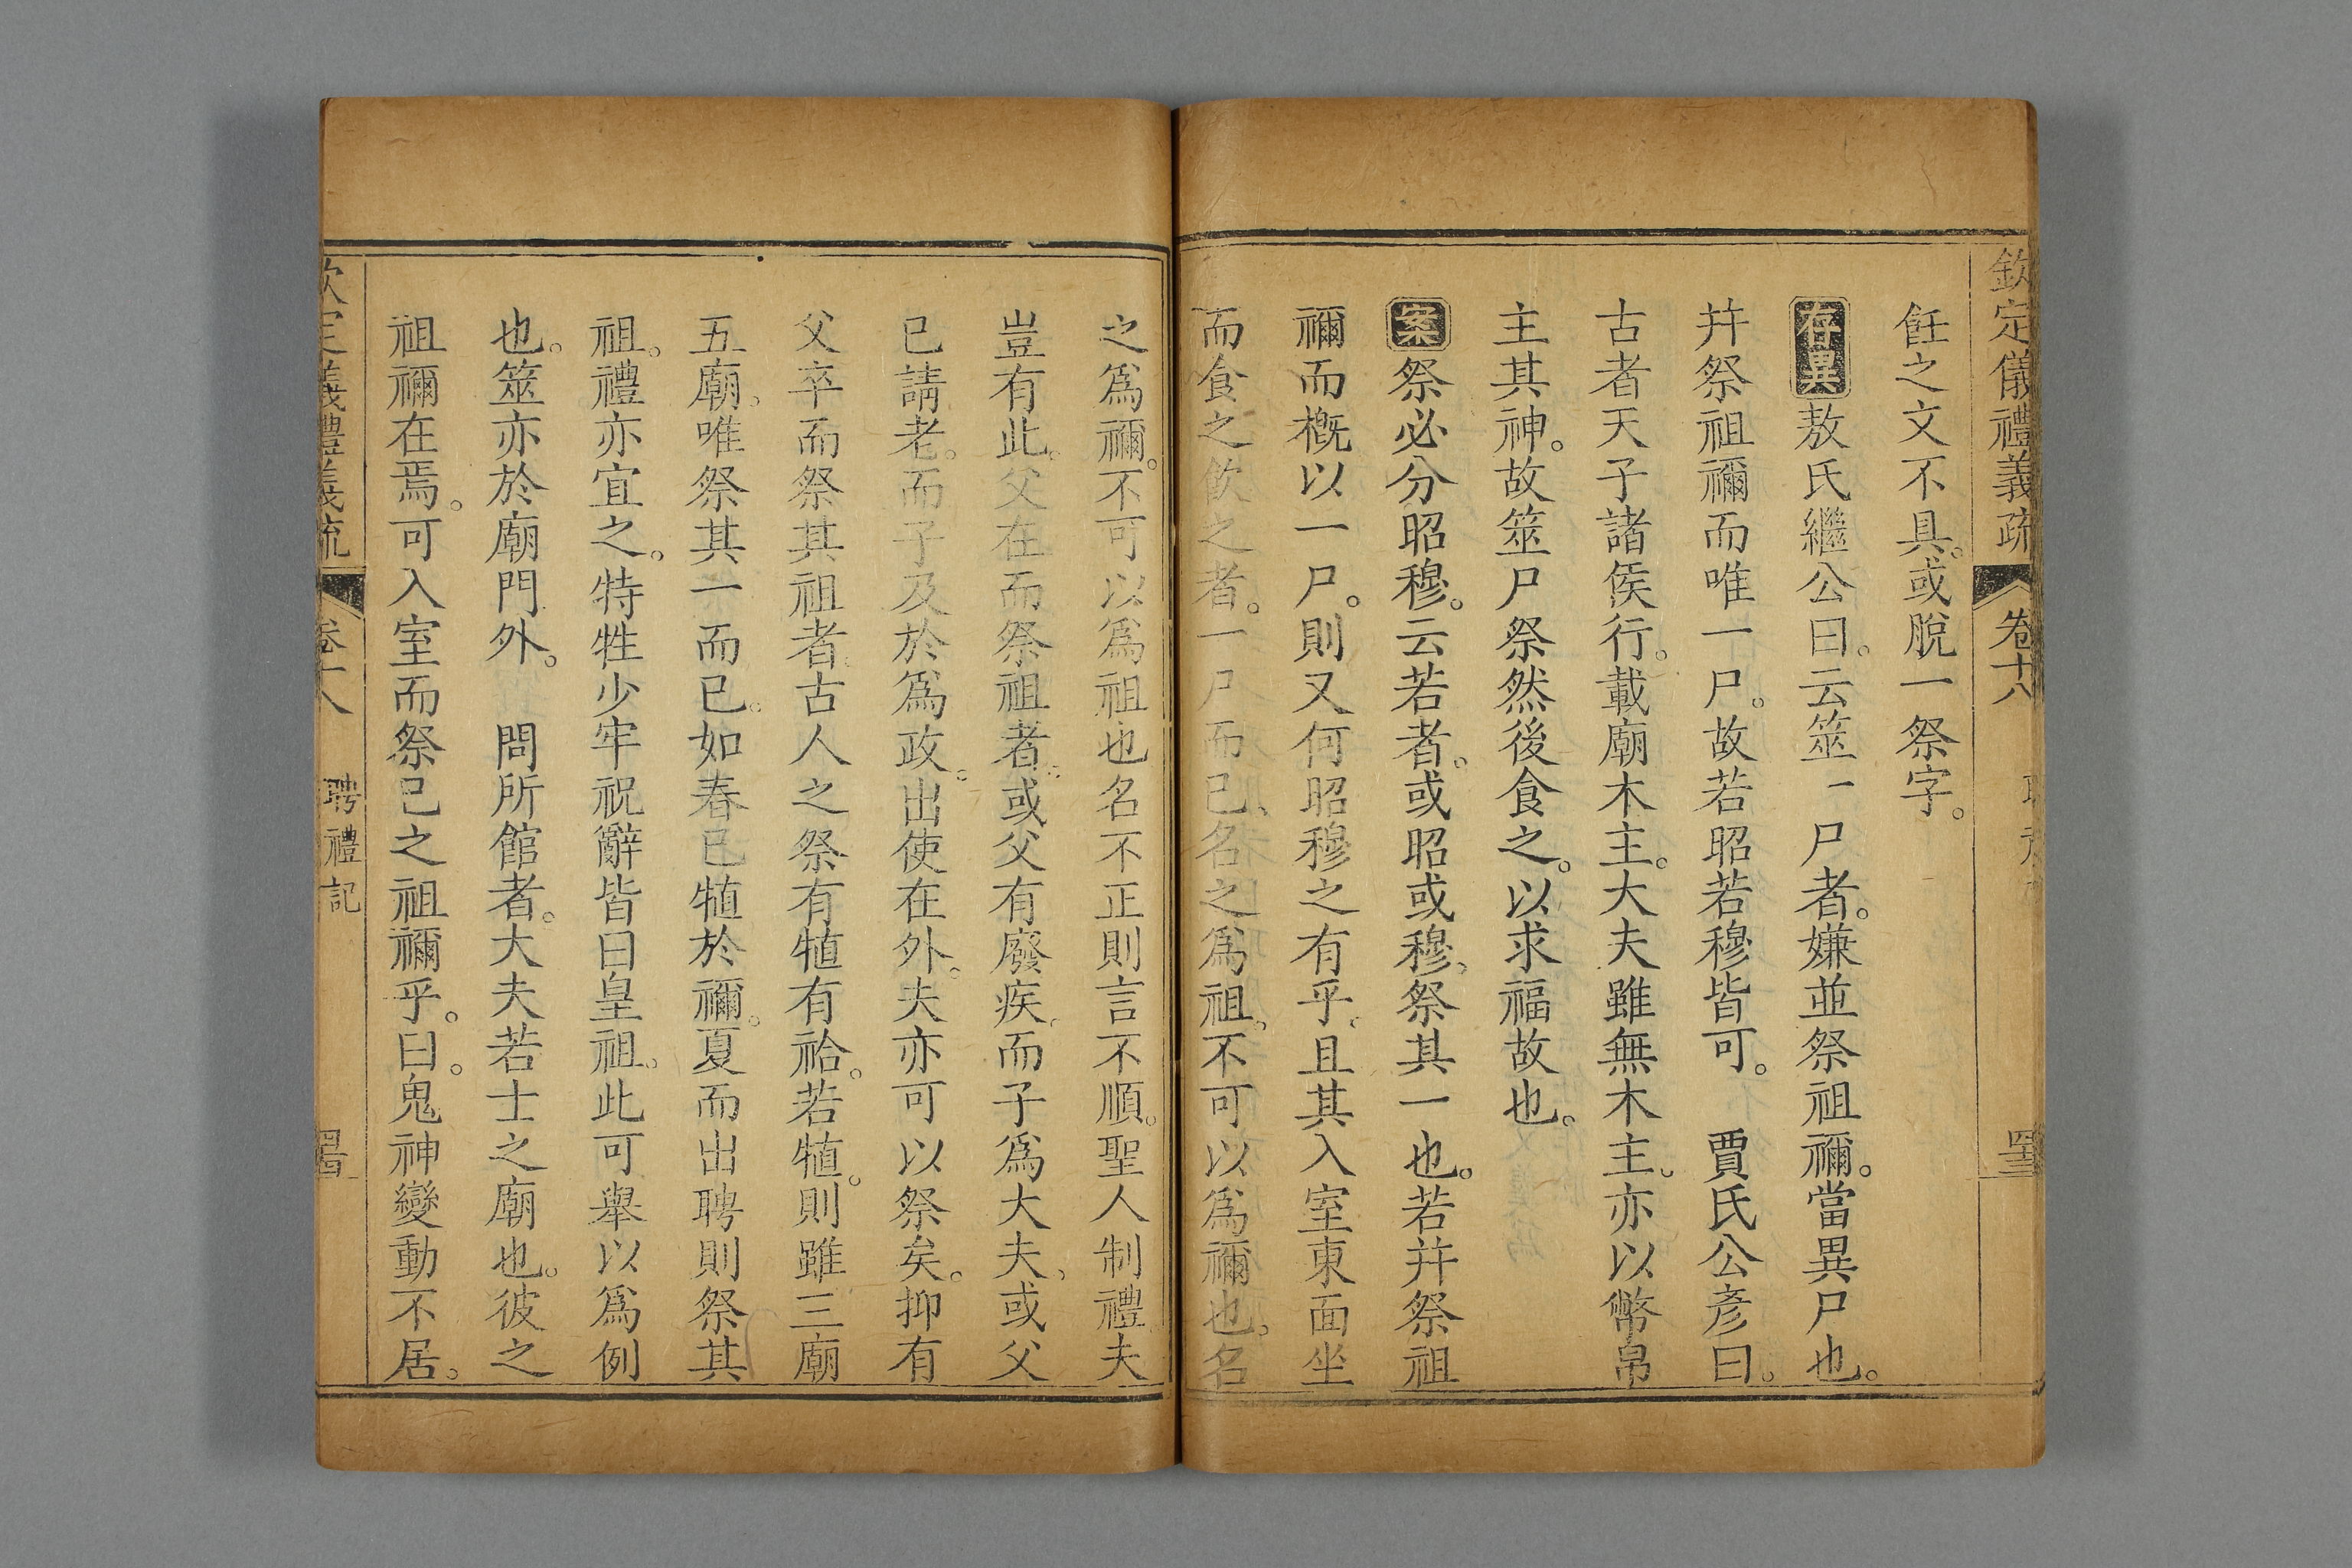 欽定儀禮義疏 卷十八
飪之文不具。或脫一祭字。
存異敖氏繼公曰。云筮一尸者。嫌並祭祖禰。當異尸也。
并祭祖禰而唯一尸。故若昭若穆皆可。 賈氏公彥曰。
古者天子諸侯行。載廟木主。大夫雖無木主。亦以幣帛
主其神。故筮尸祭然後食之。以求福故也。
案祭必分昭穆。云若者。或昭或穆。祭其一也。若并祭祖
禰而槪以一尸。則又何昭穆之有乎。且其入室東面坐
而食之飲之者。一尸而已、名之爲祖。不可以爲禰也。名
之爲禰。不可以爲祖也名不正則言不順。聖人制禮夫
豈有此。父在而祭祖者。或父有廢疾。而子爲大夫、或父
已請老。而子及於爲政。出使在外。夫亦可以祭矣。抑有
父卒而祭其祖者。古人之祭有犆有祫。若犆。則雖三廟
五廟。唯祭其一而已。如春已犆於禰。夏而出聘則祭其
祖。禮亦宜之。特牲少牢祝辭皆曰皇祖。此可舉以爲例
也。筮亦於廟門外。 問所館者。大夫若士之廟也。彼之
祖禰在焉。可入室而祭己之祖禰乎。曰。鬼神變動不居。
卷十八 聘禮記